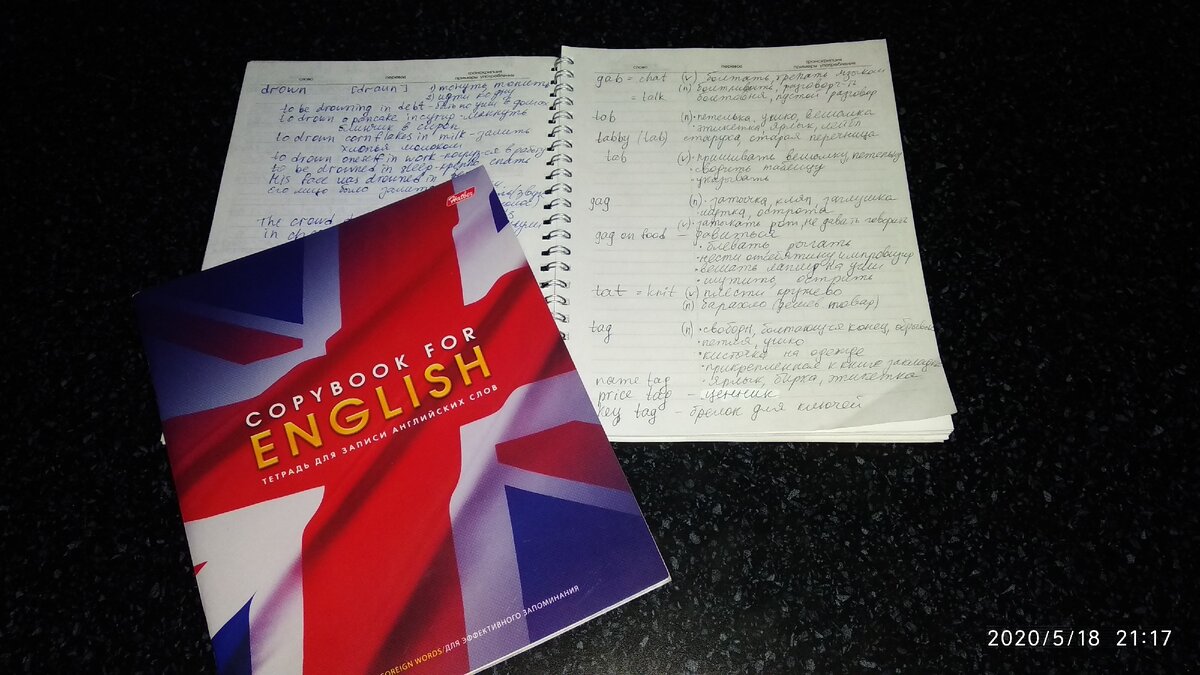 слово перевод транскрипция
примеры употребления
drown [draun] 1) тонуть, топить
2) идти ко дну
to be drowning in debt - быть по уши в долгах
to drown a pancake in syrup - макнуть
блинчик в сироп
to drown cornflakes in milk - залить
хлопья молоком
to drown oneself in work -
to be drowned in sleep - крепко спать
His face was drowned in
его лицо было залито
The crowd
in
слово перевод транскрипция
примеры употребления
gab = chat (v) болтать, трепать языком
(n) болтливость, разговорч-ть
= talk болтовня, пустой разговор
tab (n) • петелька, ушко, вешалка
• этикетка, ярлык, лейбл
tabby (tab) старуха, старая перечница
tab (v) • пришивать вешалку, петельку
• сводить таблицу
• указывать
gag (n) • затычка, кляп, заглушка
• шутка, острота
(v) • затыкать рот, не давать говорить
gag on food — давиться
• блевать, рыгать
• нести отсебятину, импровизир
• вешать лапшу на уши
• шутить, острить
tat = knit (v) плести кружево
(n) барахло (дешев товар)
tag (n) • свободн, болтающийся конец, обрывок
• петля, ушко
• кисточка на одежде
• прикрепленная к книге закладка
name tag • ярлык, бирка, этикетка
price tag — ценник
key tag — брелок для ключей
Hatber
COPYBOOK FOR
ENGLISH
ТЕТРАДЬ ДЛЯ ЗАПИСИ АНГЛИЙСКИХ СЛОВ
FOREIGN WORDS/ДЛЯ ЭФФЕКТИВНОГО ЗАПОМИНАНИЯ
2020/5/18 21:17